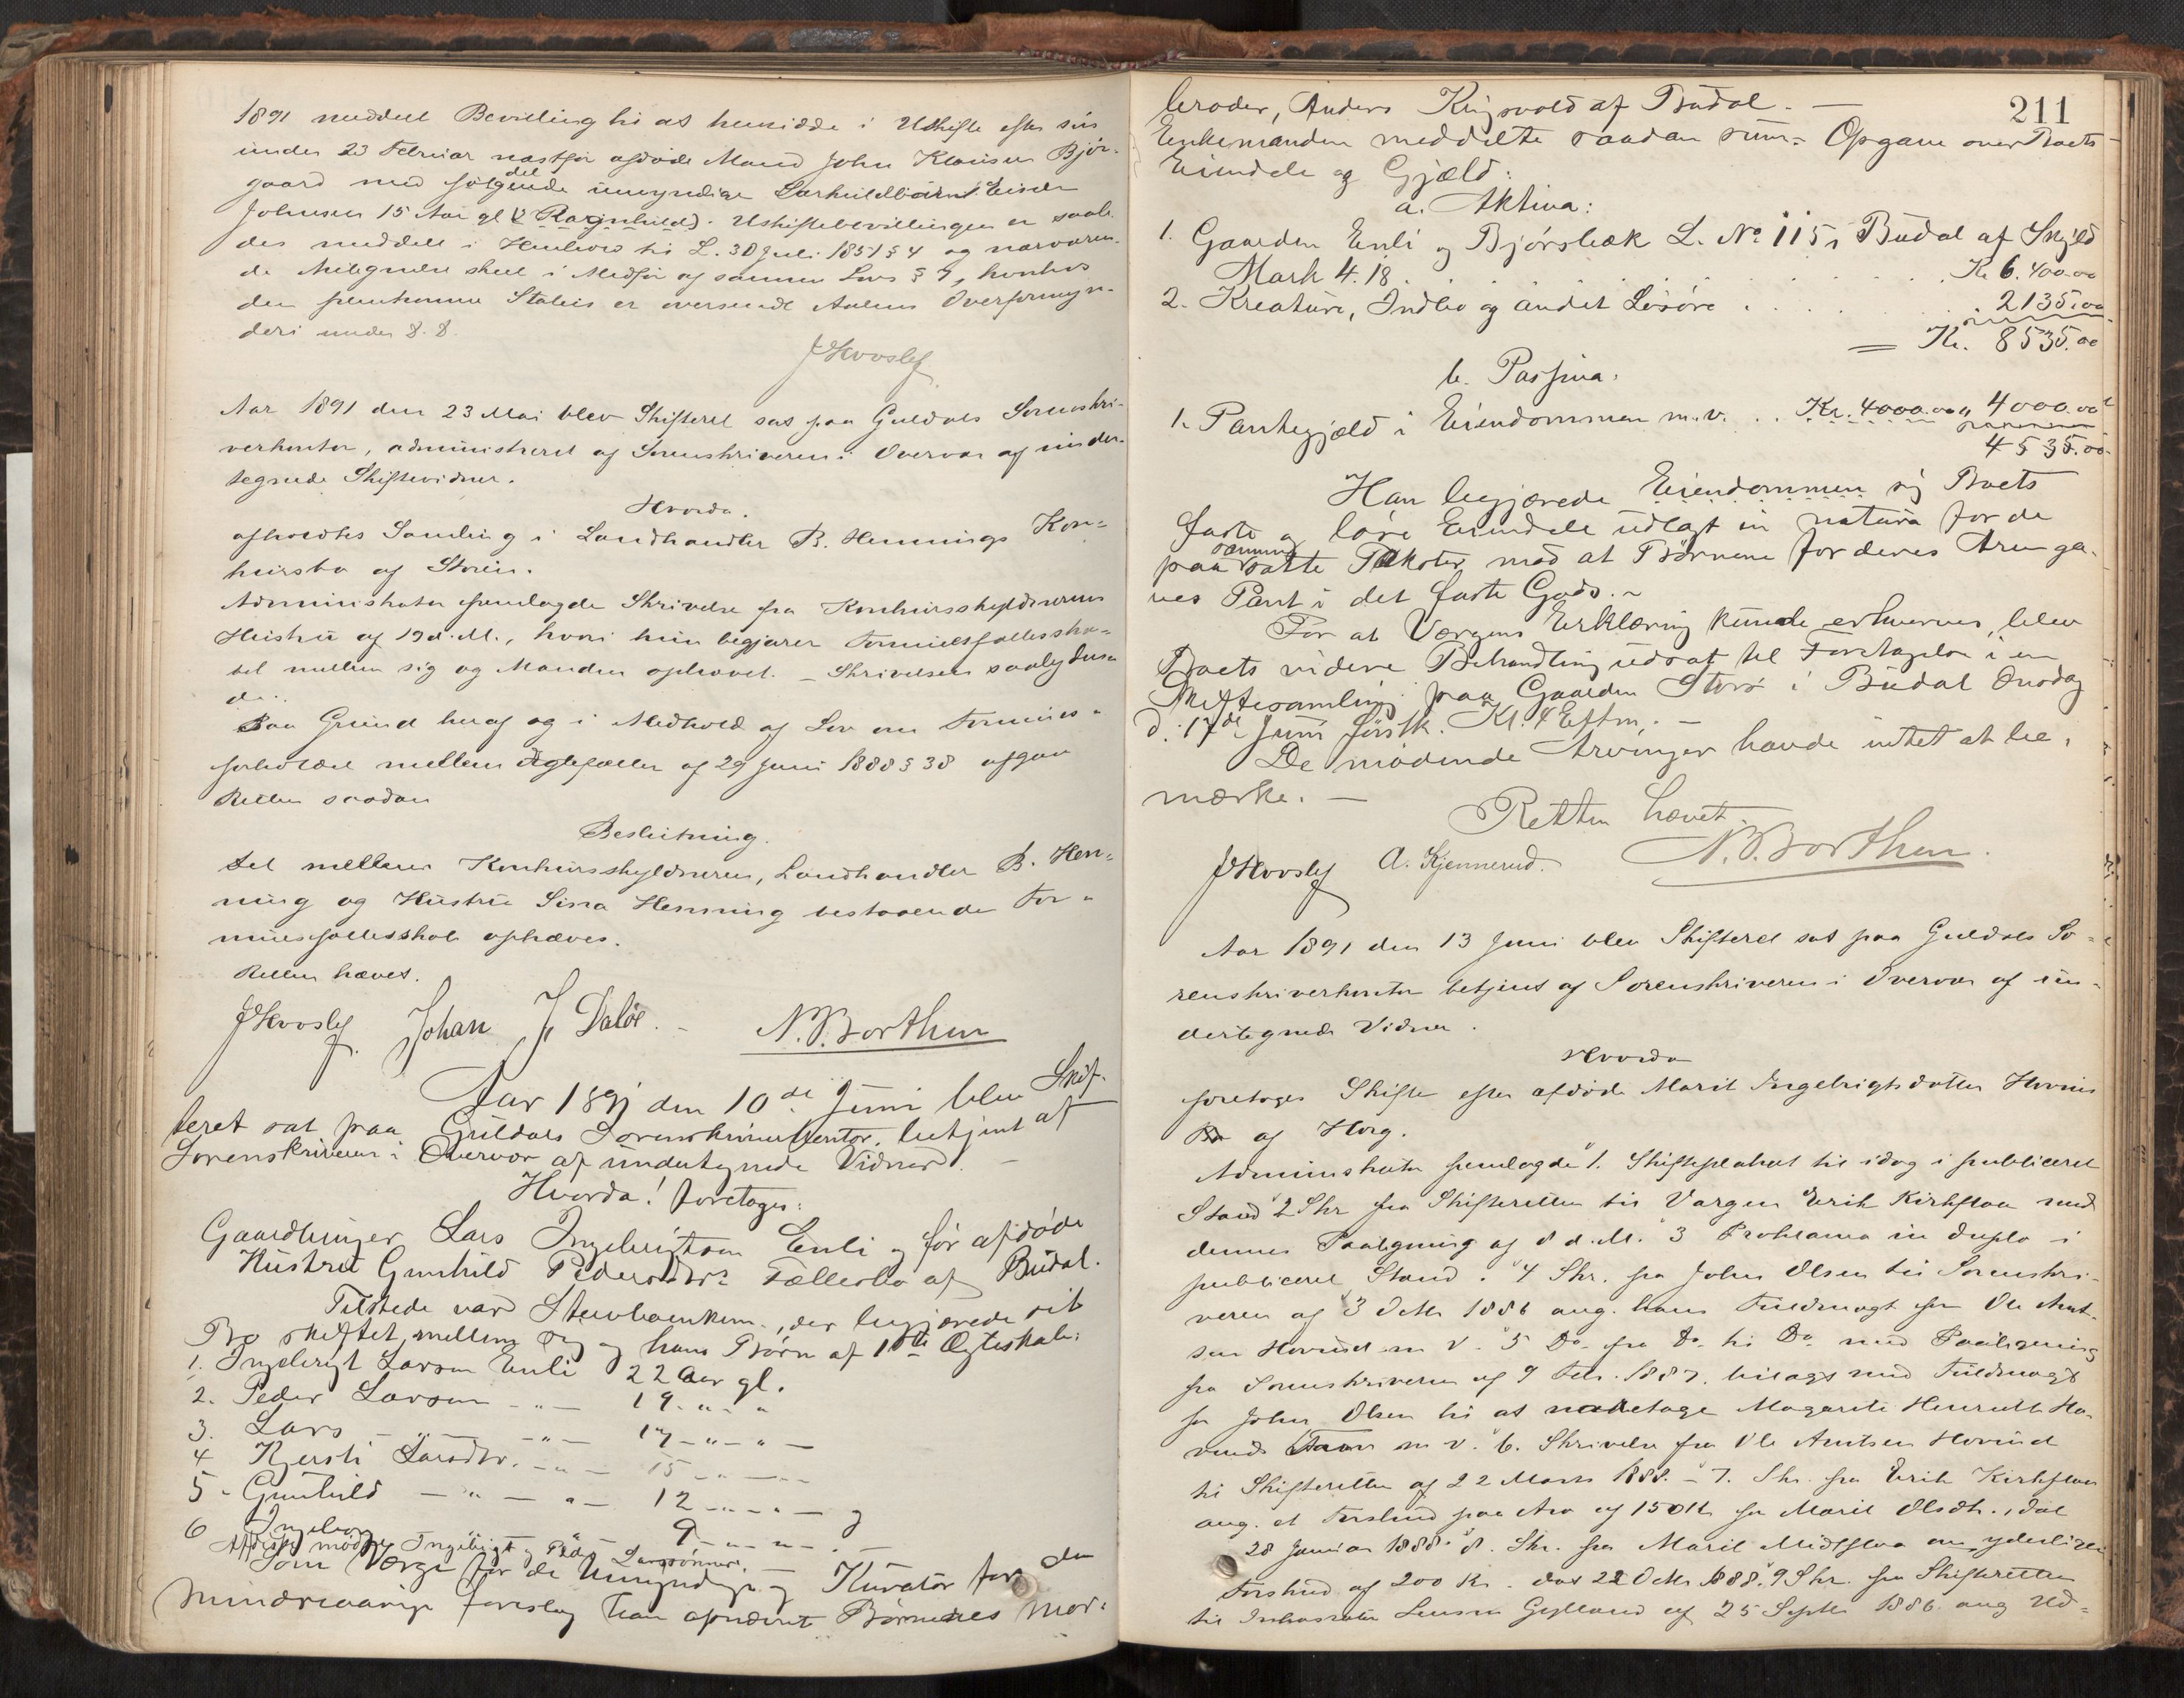 1891 meddelt Bevilling til at hensidde i Uskifte efter sin
under 23 Februar næstfør afdøde Mand John Klausen Bjør-
gaard med følgende umyndige Særkuldbørn 1. Einar
Johnsen 15 Aar gl (2 Ragnhild). Uskiftebevillingen er saale
des meddelt i Henhold til L. 30 Juli 1851 § 4 og nærværen-
de Antegnelse skeet i Medfør af samme Lovs § 9, hvorhos
den fremkomne Status er oversendt Aalens Overformyn-
deri under D. D.
JHvoslef
Aar 1891 den 23 Mai blev Skifteret sat paa Guldals Sorenskri-
verkontor, administreret af Sorenskriveren i Overvær af under-
tegnede Skiftevidner.
Hvorda.
afholdtes Samling i Landhandler B. Hennings Kon-
kursbo af Støren.
Administrator fremlagde Skrivelse fra Konkursskyldnerens
Hustru af 19 d. M., hvori hun begjærer Formuesfællesska-
bet mellem sig og Manden ophævet. - Skrivelsen saalyden-
de:
Paa Grund heraf og i Medhold af Lov om Formues-
forholdet mellem Ægtefæller af 29 Juni 1888 § 38 afgav
Retten saadan
Beslutning.
Det mellem Konkursskyldneren, Landhandler B. Hen-
ning og Hustru Sina Henning bestaaende For-
muesfællesskab ophæves.
Retten hævet.
JHvoslef Johan J. Daløe. - N. P. Borthen
Aar 1891 den 10de Juni blev Skif-
teret sat paa Guldals Sorenskriverkontor, betjent af
Sorenskriveren i Overvær af undertegnede Vidner. -
Hvorda! foretoges:
Gaardbruger Lars Ingebrigtsen Enli og før afdøde
Hustru Gunhild Pedersdtrs Fællesbo af Budal.
Tilstede var Stervboenkem., der begjærede sit
Bo skiftet mellem sig og hans Børn af 1ste Ægteskab:
1. Ingebrigt Larsen Enli 22 Aar gl.
2. Peder Larsen -"- 19 -"-"
3. Lars -"- -"- 17 -"-"-
4 Kjersti Larsdtr. -"- 15 -"-"-
5 - Gunhild -"- "- 12 -"-"- og
6 Ingeborg 9 -"-"- . -
Af disse mødte Ingebrigt og Peder Larssønner. -
Som Værge for de Umyndige og Kurator for den
Mindreaarige foreslog han opnævnt Børnenes Mor-
211
broder, Anders Ringvold af Budal. -
Enkemanden meddelte saadan sum- Opgave over Boets
Eiendele og Gjæld:
a. Aktiva:
1. Gaarden Enli og Bjørsbæk L. No 115 i Budal af Skyld
Mark 4.18 . . . Kr 6.400.00
2. Kreature, Indbo og andet Løsøre . . . 2135.00
= Kr. 8535.00
b. Passiva:
1. Pantegjæld i Eiendommen m. v. . . Kr. 4000.00 4000.00
4535.00
Han begjærede Eiendommen sig Boets
faste og løse Eiendele udlagt in natura for de
paasatte Takster, mod at Børnene for deres Arv ga-
ves Pant i det faste Gods. -
For at Værgens Erklæring kunde erhverves, blev
Boets videre Behandling udsat til Foretagelse i en
Skiftesamling paa Gaarden Storø i Budal Onsdag
d. 17de Juni førstk. Kl. 4 Eftm. -
De mødende Arvinger havde intet at be-
mærke. -
Retten hævet.
JHvoslef A. Kjennerud. N. P. Borthen.
Aar 1891 den 13 Juni blev Skifteret sat paa Guldals So-
renskriverkontor betjent af Sorenskriveren i Overvær af un-
dertegnede Vidner.
Hvorda
foretoges Skifte efter afdøde Marit Ingebrigtsdatter Hovins
Bo af Horg.
Administrator fremlagde "1. Skifteplakat til idag i publiceret
Stand "2 Skr fra Skifteretten til Værgen Erik Kirkfloa med
dennes Paategning af 8 d. M. "3 Proklama in duplo i
publiceret Stand. "4 Skr. fra John Olsen til Sorenskri-
veren af 3 Oktbr 1886 ang. hans Fuldmagt fra Ole Arnt-
sen Hovind m v. "5 Do. fra Do. til Do. med Paategning
fra Sorenskriveren af 9 Febr. 1887. bilagt med Fuldmagt
for John Olsen til at modtage Magarete Henriette Ho-
vinds Arv m v. "6. Skrivelse fra Ole Arntsen Hovind
til Skifteretten af 22 Marts 1888. "7. Skr. fra Erik Kirkfloa
ang. et Forskud paa Arv af 150 Kr for Marit Olsdtr., dat
28 Januar 1888. "8. Skr. fra Marit Midtfloa om yderligere
Forskud af 200 Kr. dat 22 Oktbr 1888. "9 Skr. fra Skifteretten
til Inkassator Lensm Gylland af 25 Septbr 1886 ang Ud-